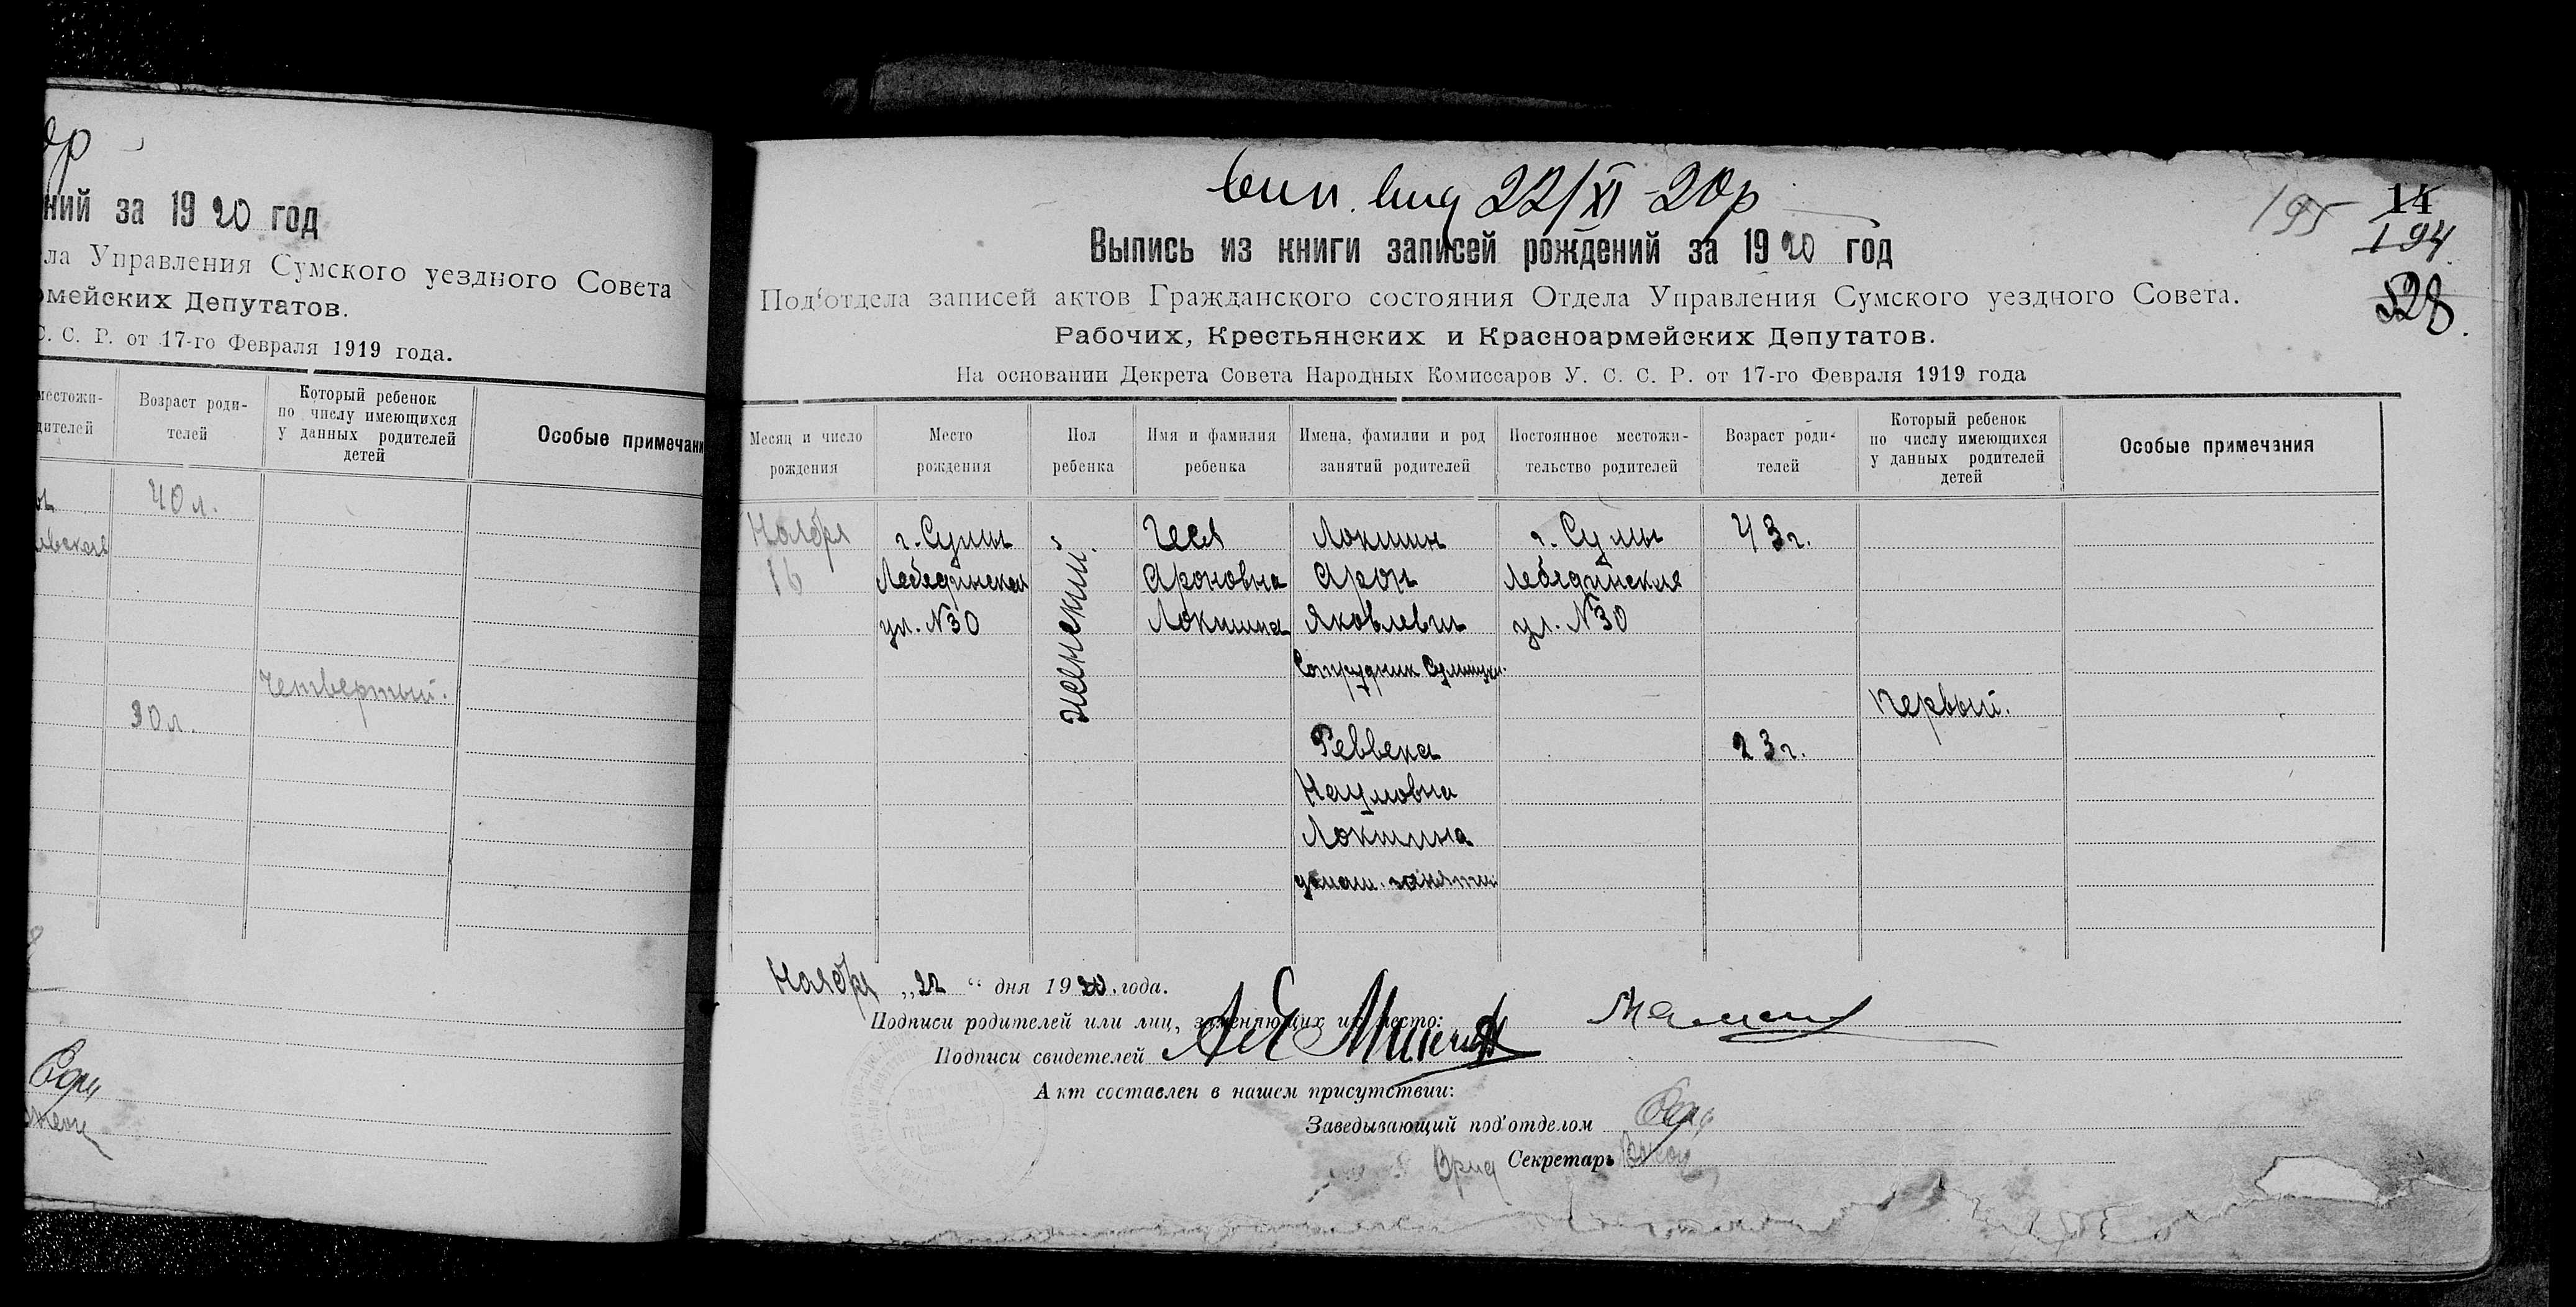 ний за 1920 год
ла Управления Сумского уездного Совета
рмейских Депутатов.
С. С. Р. от 17-го Февраля 1919 года.
местожи-
дителей
Возраст роди-
телей
Который ребенок
по числу имеющихся
у данных родителей
детей
Особые примечани
40 л.
Четвертый.
30 л.
22/XI-20р
Выпись из книги записей рождений за 1920 год
195
14
194
528.
Под'отдела записей актов Гражданского состояния Отдела Управления Сумского уездного Совета.
Рабочих, Крестьянских и Красноармейских Депутатов.
На основании Декрета Совета Народных Комиссаров У. С. С. Р. от 17-го Февраля 1919 года
Месяц и число
рождения
Место
рождения
Пол
ребенка
Имя и фамилия
ребенка
Имена, фамилии и род
занятий родителей
Постоянное местожи-
тельство родителей
Возраст роди-
телей
Который ребенок
по числу имеющихся
у данных родителей
детей
Особые примечания
Ноября
16
г. Сумы
Лебединская
ул. №30
женский.
Геся
Ароновна
Локшина
Локшин
Арон
Яковлевич
Сотрудник
г. Сумы
Лебединская
ул. №30
43 г.
Первый.
Реввека
Наумовна
Локшина
домаш. занятия
23 г.
Ноября „22“ дня 1920 года.
Подписи родителей или лиц, заменяющих их место:
Подписи свидетелей
Акт составлен в нашем присутствии:
Заведывающий под'отделом
Врид Секретарь